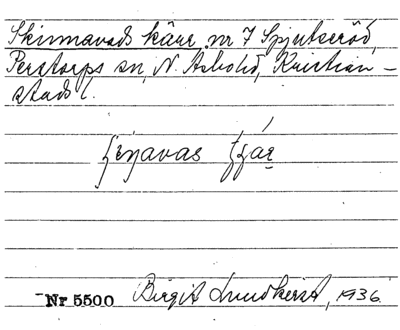 Skinnavads kärr nr 7 Spjutseröd,
Perstorps sn, N. Åsbo hd, Kristian-
stads l.
Nr 5500 Birgit Lundkvist, 1936.